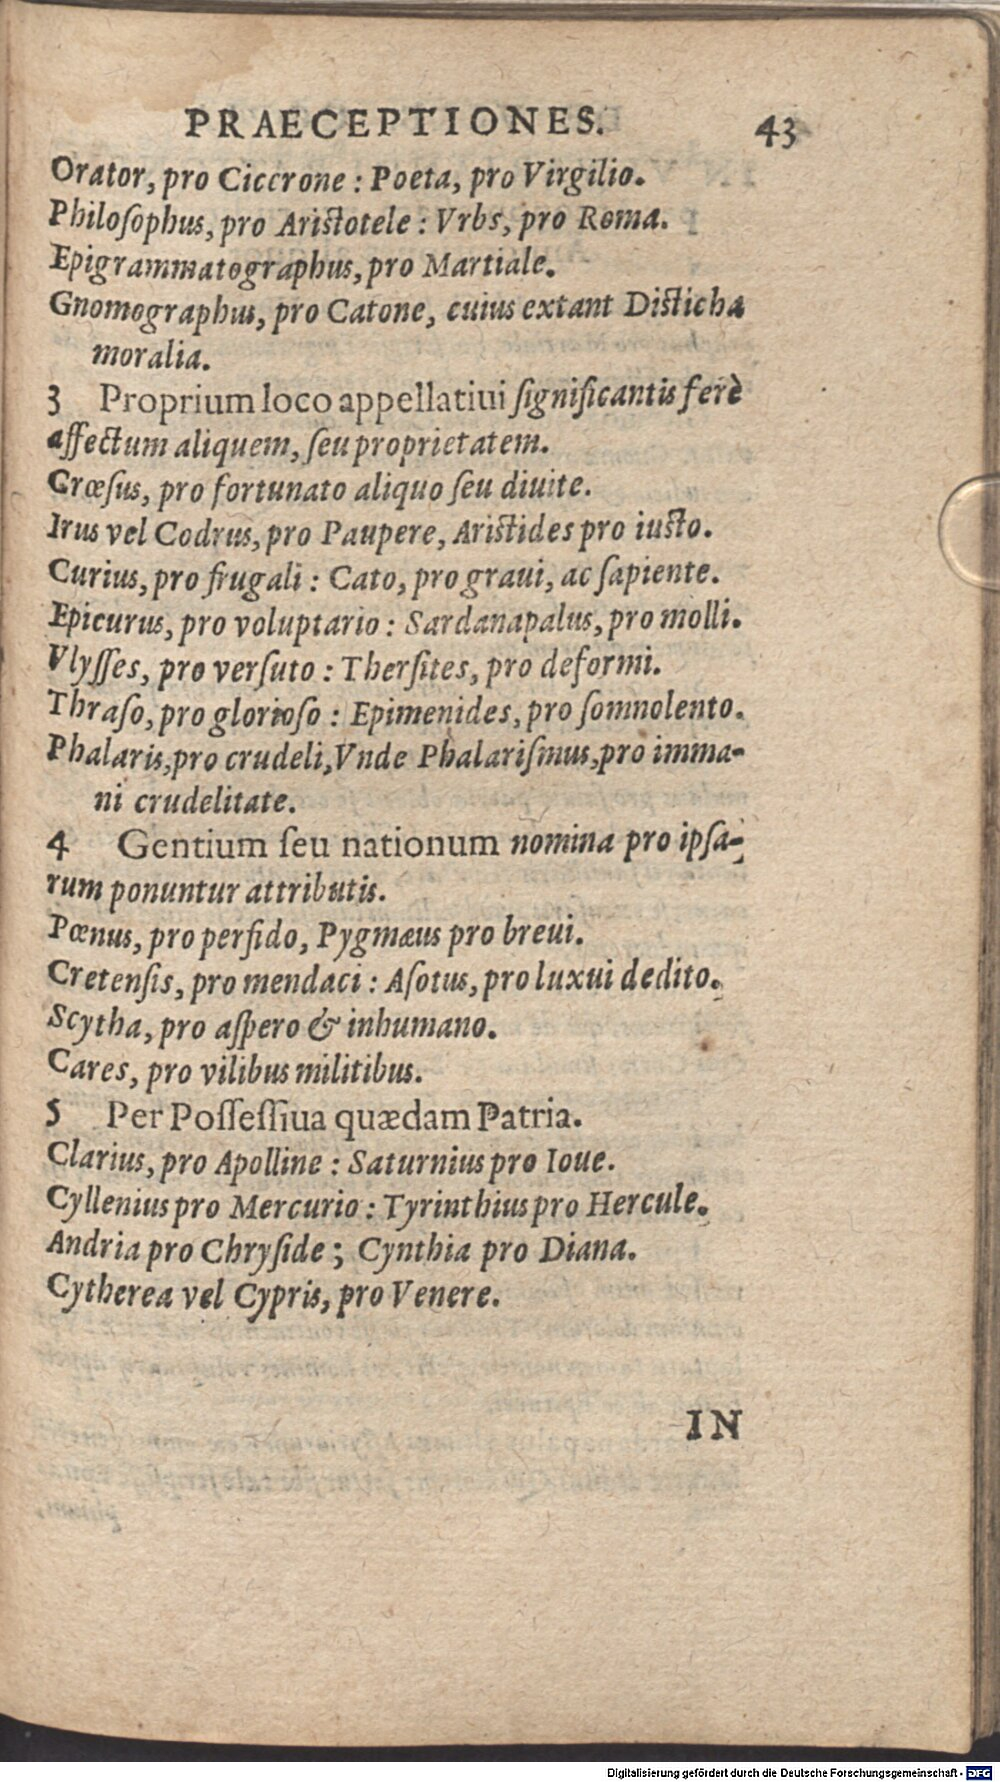 PRAECEPTIONES. 43
Orator, pro Ciccrone : Poeta, pro Virgilio.
Philoſophus, pro Ariſtotele : Vrbs, pro Roma.
Epigrammatographus, pro Martiale.
Gnomographus, pro Catone, cuius extant Diſticha
moralia.
3 Proprium loco appellatiui ſignificantis ferè
affectum aliquem, ſeu proprietatem.
Crœſus, pro fortunato aliquo ſeu diuite.
Irus vel Codrus, pro Paupere, Ariſtides pro iuſto.
Curius, pro frugali : Cato, pro graui, ac ſapiente.
Epicurus, pro voluptario : Sardanapalus, pro molli.
Vlyſſes, pro verſuto : Therſites, pro deformi.
Thraſo, pro glorioſo : Epimenides, pro ſomnolento.
Phalaris, pro crudeli, Vnde Phalariſmus, pro imma-
ni crudelitate.
4 Gentium ſeu nationum nomina pro ipſa-
rum ponuntur attributis.
Pœnus, pro perfido, Pygmæus pro breui.
Cretenſis, pro mendaci : Aſotus, pro luxui dedito.
Scytha, pro aſpero & inhumano.
Cares, pro vilibus militibus.
5 Per Poſſeſſiua quædam Patria.
Clarius, pro Apolline : Saturnius pro Ioue.
Cyllenius pro Mercurio : Tyrinthius pro Hercule.
Andria pro Chryſide ; Cynthia pro Diana.
Cytherea vel Cypris, pro Venere.
IN
Digitalisierung gefördert durch die Deutsche Forschungsgemeinschaft - DFG